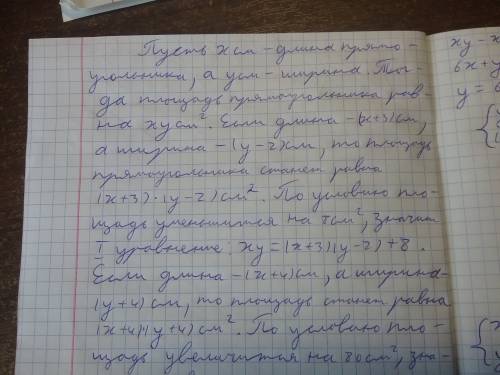 Пусть x см - длина прямо-
угольника, а y см - ширина. Тог-
да площадь прямоугольника рав-
на xy см². Если длина - (x+3) см,
а ширина - (y-2) см, то площадь
прямоугольника станет равна
(x+3)·(y-2) см². По условию пло-
щадь уменьшится на 8 см², значит
I уравнение: xy = (x+3)(y-2)+8.
Если длина - (x+4) см, а ширина -
(y+4) см, то площадь станет равна
(x+4)(y+4) см². По условию пло-
щадь увеличится на 80 см², зна-
xy - x
6x + y
y = 6